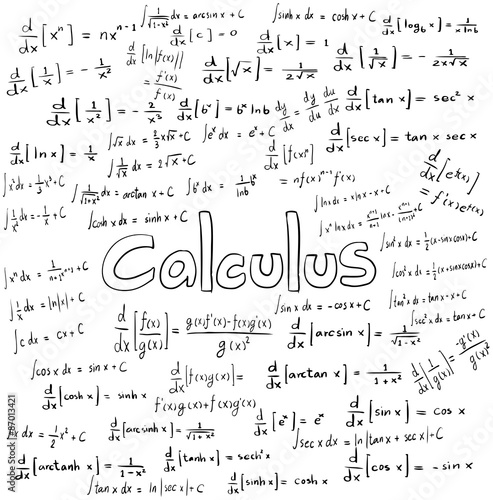 d/dx [xⁿ] = nxⁿ⁻¹
∫ 1/√(1-x²) dx = arcsin x + C
∫sinh x dx = cosh x + C
d/dx [log_b x] = 1/(x ln b)
d/dx [c] = 0
d/dx [x] = 1
d/dx [1/x] = - 1/x²
d/dx [ln|f(x)|] = f'(x)/f(x)
d/dx [√x] = 1/(2√x)
d/dx [1/√x] = - 1/(2x√x)
d/dx [1/x²] = - 2/x³
d/dx [bˣ] = bˣ ln b
dy/dx = dy/du du/dx
d/dx [tan x] = sec² x
d/dx [ln x] = 1/x
∫√x dx = 2/3 x√x + C
∫eˣ dx = eˣ + C
d/dx [sec x] = tan x sec x
∫ 1/√x dx = 2√x + C
d/dx [f(x)ⁿ] = nf(x)ⁿ⁻¹ f'(x)
d/dx [e^f(x)] = f'(x) e^f(x)
∫x² dx = 1/3 x³ + C
∫ 1/√(1+x²) dx = arctan x + C
∫bˣ dx = 1/ln b bˣ
∫ln dx = x ln x - x + C
∫ 1/x² dx = - 1/x + C
∫cosh x dx = sinh x + C
∫xⁿ ln x dx = xⁿ⁺¹/(n+1) ln x - xⁿ⁺¹/(n+1)² + C
∫sin² x dx = 1/2 (x - sin x cos x) + C
Calculus
∫xⁿ dx = 1/(n+1) xⁿ⁺¹ + C
∫cos² x dx = 1/2 (x + sin x cos x) + C
∫ 1/x dx = ln|x| + C
∫sin x dx = -cos x + C
∫tan² x dx = tan x - x + C
∫sec² x dx = tan x + C
∫c dx = cx + C
d/dx [f(x)/g(x)] = g(x)f'(x) - f(x)g'(x) / g(x)²
d/dx [arcsin x] = 1/√(1-x²)
∫cos x dx = sin x + C
d/dx [f(x)g(x)] = f'(x)g(x) + f(x)g'(x)
d/dx [arctan x] = 1/(1+x²)
d/dx [1/g(x)] = -g'(x)/g(x)²
d/dx [cosh x] = sinh x
d/dx [eˣ] = eˣ
d/dx [sin x] = cos x
∫x dx = 1/2 x² + C
d/dx [arcsinh x] = 1/√(1+x²)
∫sec x dx = ln|tan x + sec x| + C
d/dx [arctanh x] = 1/(1-x²)
d/dx [tanh x] = sech² x
d/dx [cos x] = - sin x
∫tan x dx = ln|sec x| + C
d/dx [sinh x] = cosh x
Adobe Stock